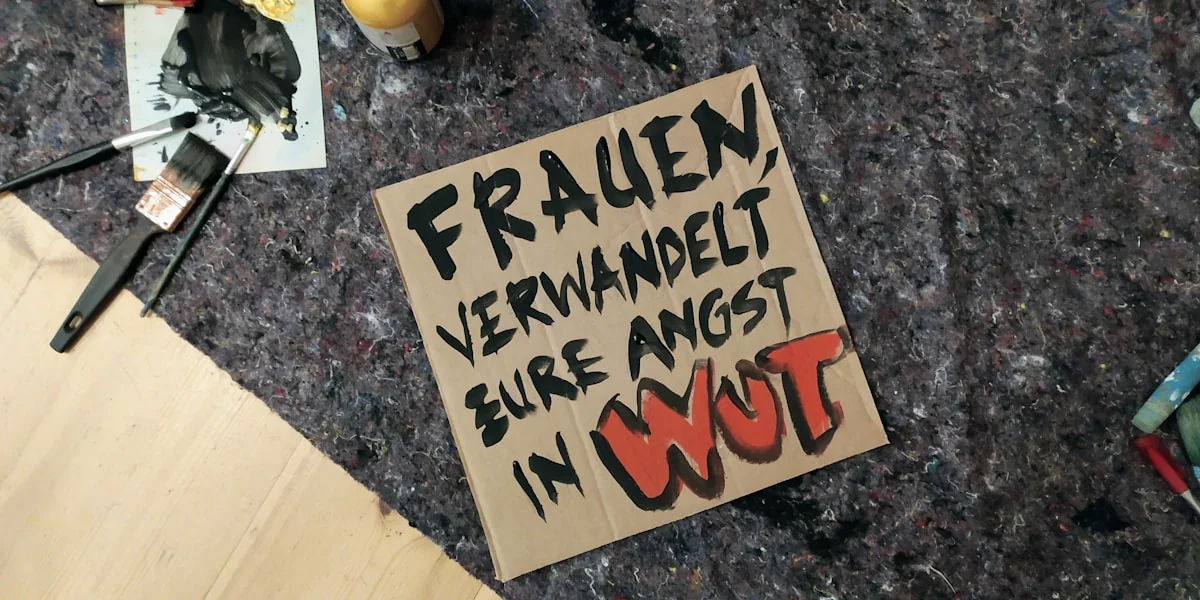 FRAUEN,
VERWANDELT
EURE ANGST
IN WUT